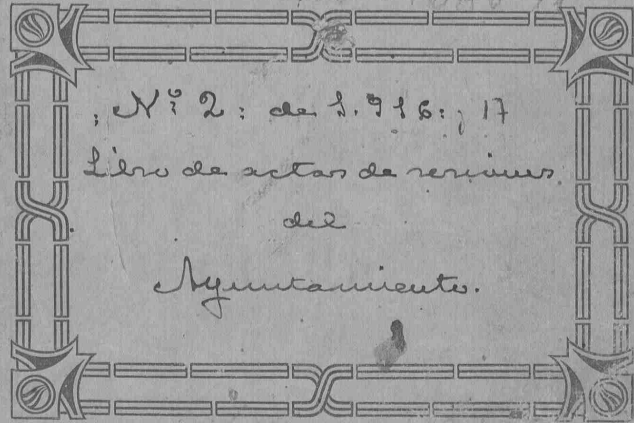 : Nº 2: de 1.916: ; 17
Libro de actas de sesiones
del
Ayuntamiento.